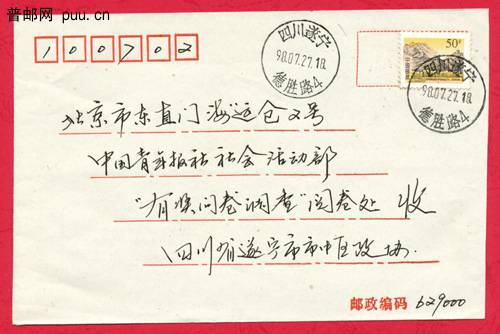 普邮网 puu.cn
100702
四川遂宁
98.07.27.18
德胜路4
50分
四川遂宁
98.07.27.18
德胜路4
北京市东直门海运仓2号
中国青年报社社会活动部
"有奖问卷调查"阅卷处 收
四川省遂宁市市中区政协
邮政编码 629000